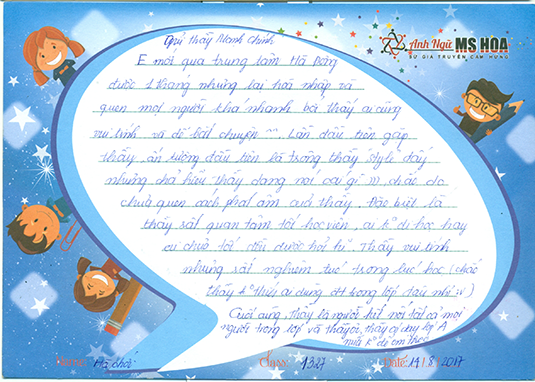 Quý thầy Mạnh Chính
Anh Ngữ MS HOA
SỨ GIẢ TRUYỀN CẢM HỨNG
E mới qua trung tâm Hà Đông
được 1 tháng nhưng lại hoà nhập và
quen mọi người khá nhanh bởi thấy ai cũng
vui tính và dễ bắt chuyện ^^... Lần đầu tiên gặp
thầy, ấn tượng đầu tiên là trông thầy style đấy
nhưng chả hiểu thầy đang nói cái gì ))), chắc do
chưa quen cách phát âm của thầy. Đặc biệt là
thầy rất quan tâm tới học viên, ai k° đi học hay
cứ chưa tới đều được hỏi kĩ. Thầy vui tính
nhưng rất nghiêm túc trong lúc học (chắc
thầy k° thích ai dùng đt trong lớp đâu nhỉ :v)
Cuối cùng, thầy là người kết nối tất cả mọi
người trong lớp và thầy ơi, thầy cứ dạy lớp A
nữa k° để em theo
Class: 1327
Date: 14/8/2017